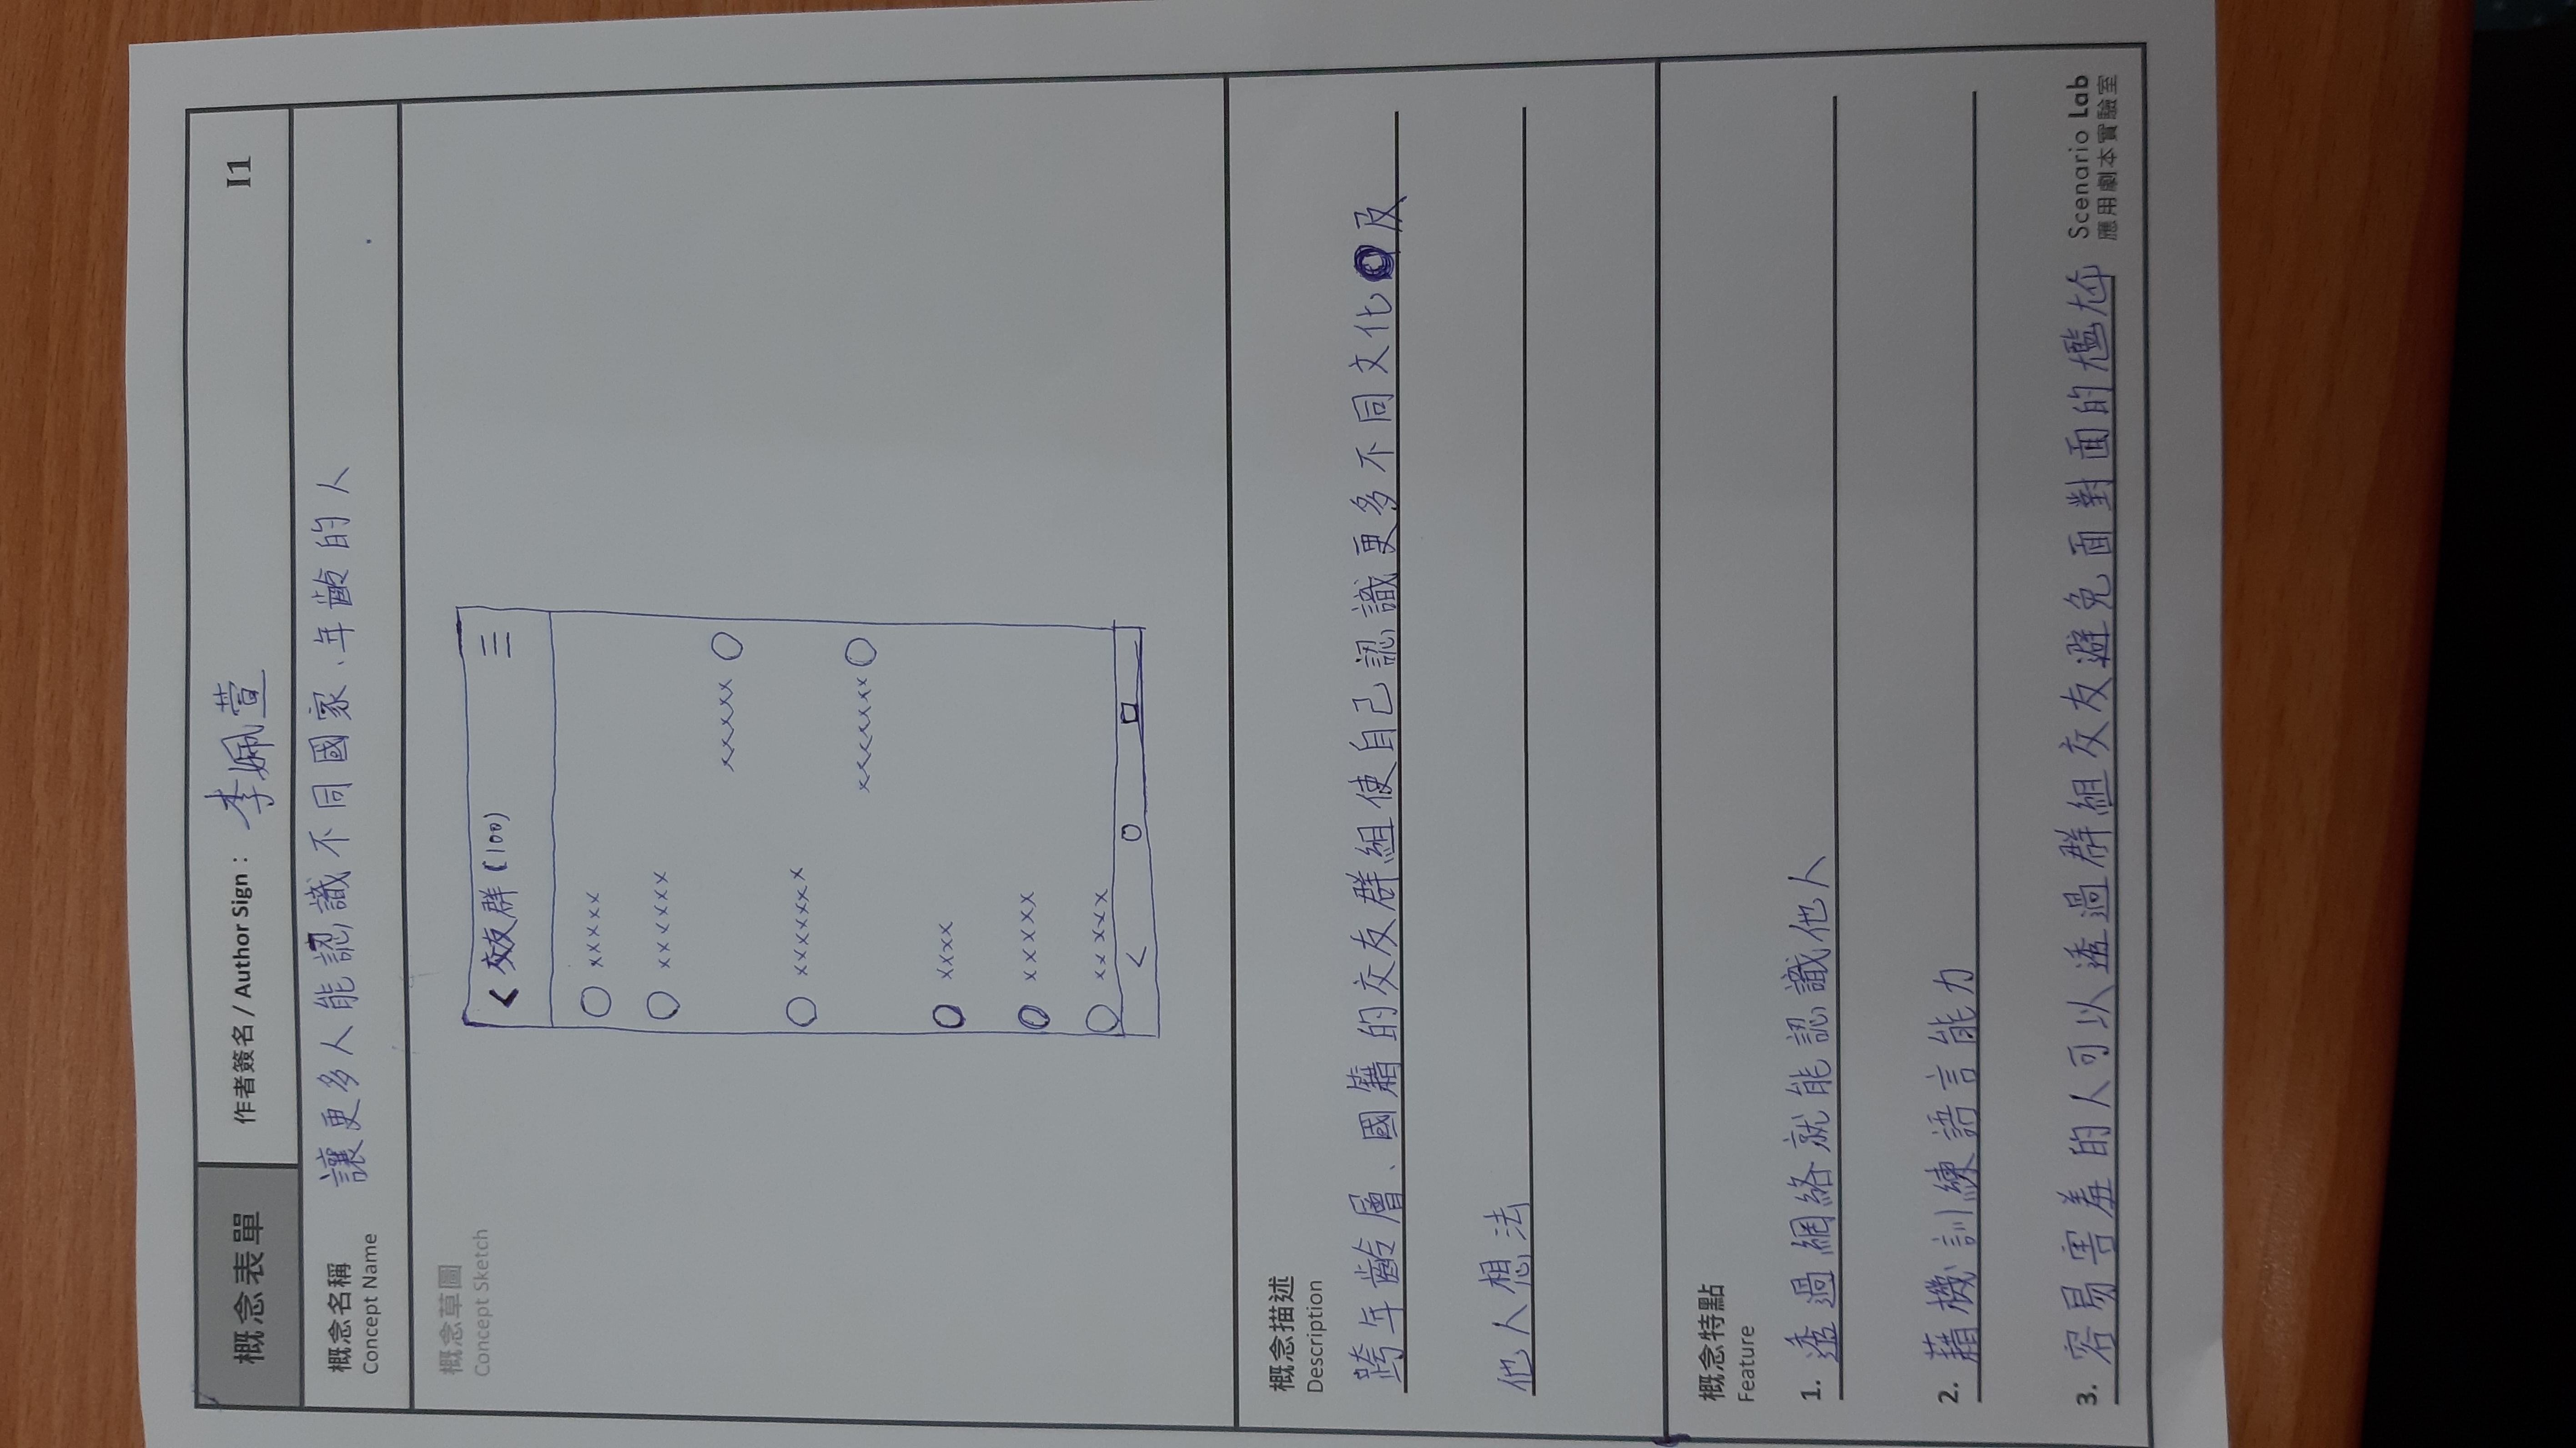 概念表單
作者簽名 / Author Sign： 李姵萱
I1
概念名稱 讓更多人能認識不同國家、年齡的人
Concept Name
概念草圖
Concept Sketch
< 交友群 (100) 三
xxxxx
xxxxxx
xxxxx
xxxxxxx
xxxxxxx
xxxx
xxxxx
xxxxx
概念描述
Description
跨年齡層、國籍的交友群組使自己認識更多不同文化及
他人想法
概念特點
Feature
1. 透過網絡就能認識他人
2. 藉機訓練語言能力
3. 容易害羞的人可以透過群組交友避免面對面的尷尬
Scenario Lab
應用劇本實驗室